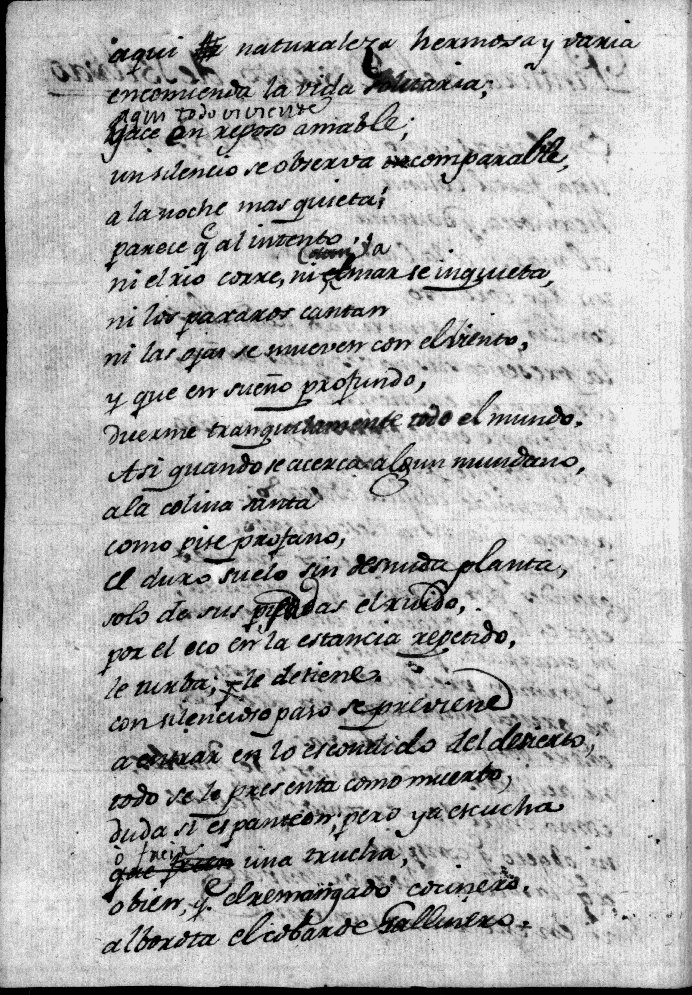 aqui la naturaleza hermosa y varia
encomienda la vida solitaria;
aqui todo viviente
yace en reposo amable;
un silencio se observa incomparable,
a la noche mas quieta;
parece q.e al intento
ni el rio corre, ni el mar se inquieta,
ni los paxaros cantan
ni las ojas se mueven con el viento,
y que en sueño profundo,
duerme tranquilamente todo el mundo.
Asi quando se acerca algun mundano,
a la colina santa
como pise profano,
el duro suelo sin desnuda planta,
solo de sus pisadas el ruido,
por el eco en la estancia repetido,
le turba; y le detiene.
con silencioso paso se previene
a entrar en lo escondido del desierto,
todo se le presenta como muerto,
duda si es panteon, pero ya escucha
ò freir
que una trucha,
o bien, q.e el remangado cocinero,
alborota el cobarde Gallinero.